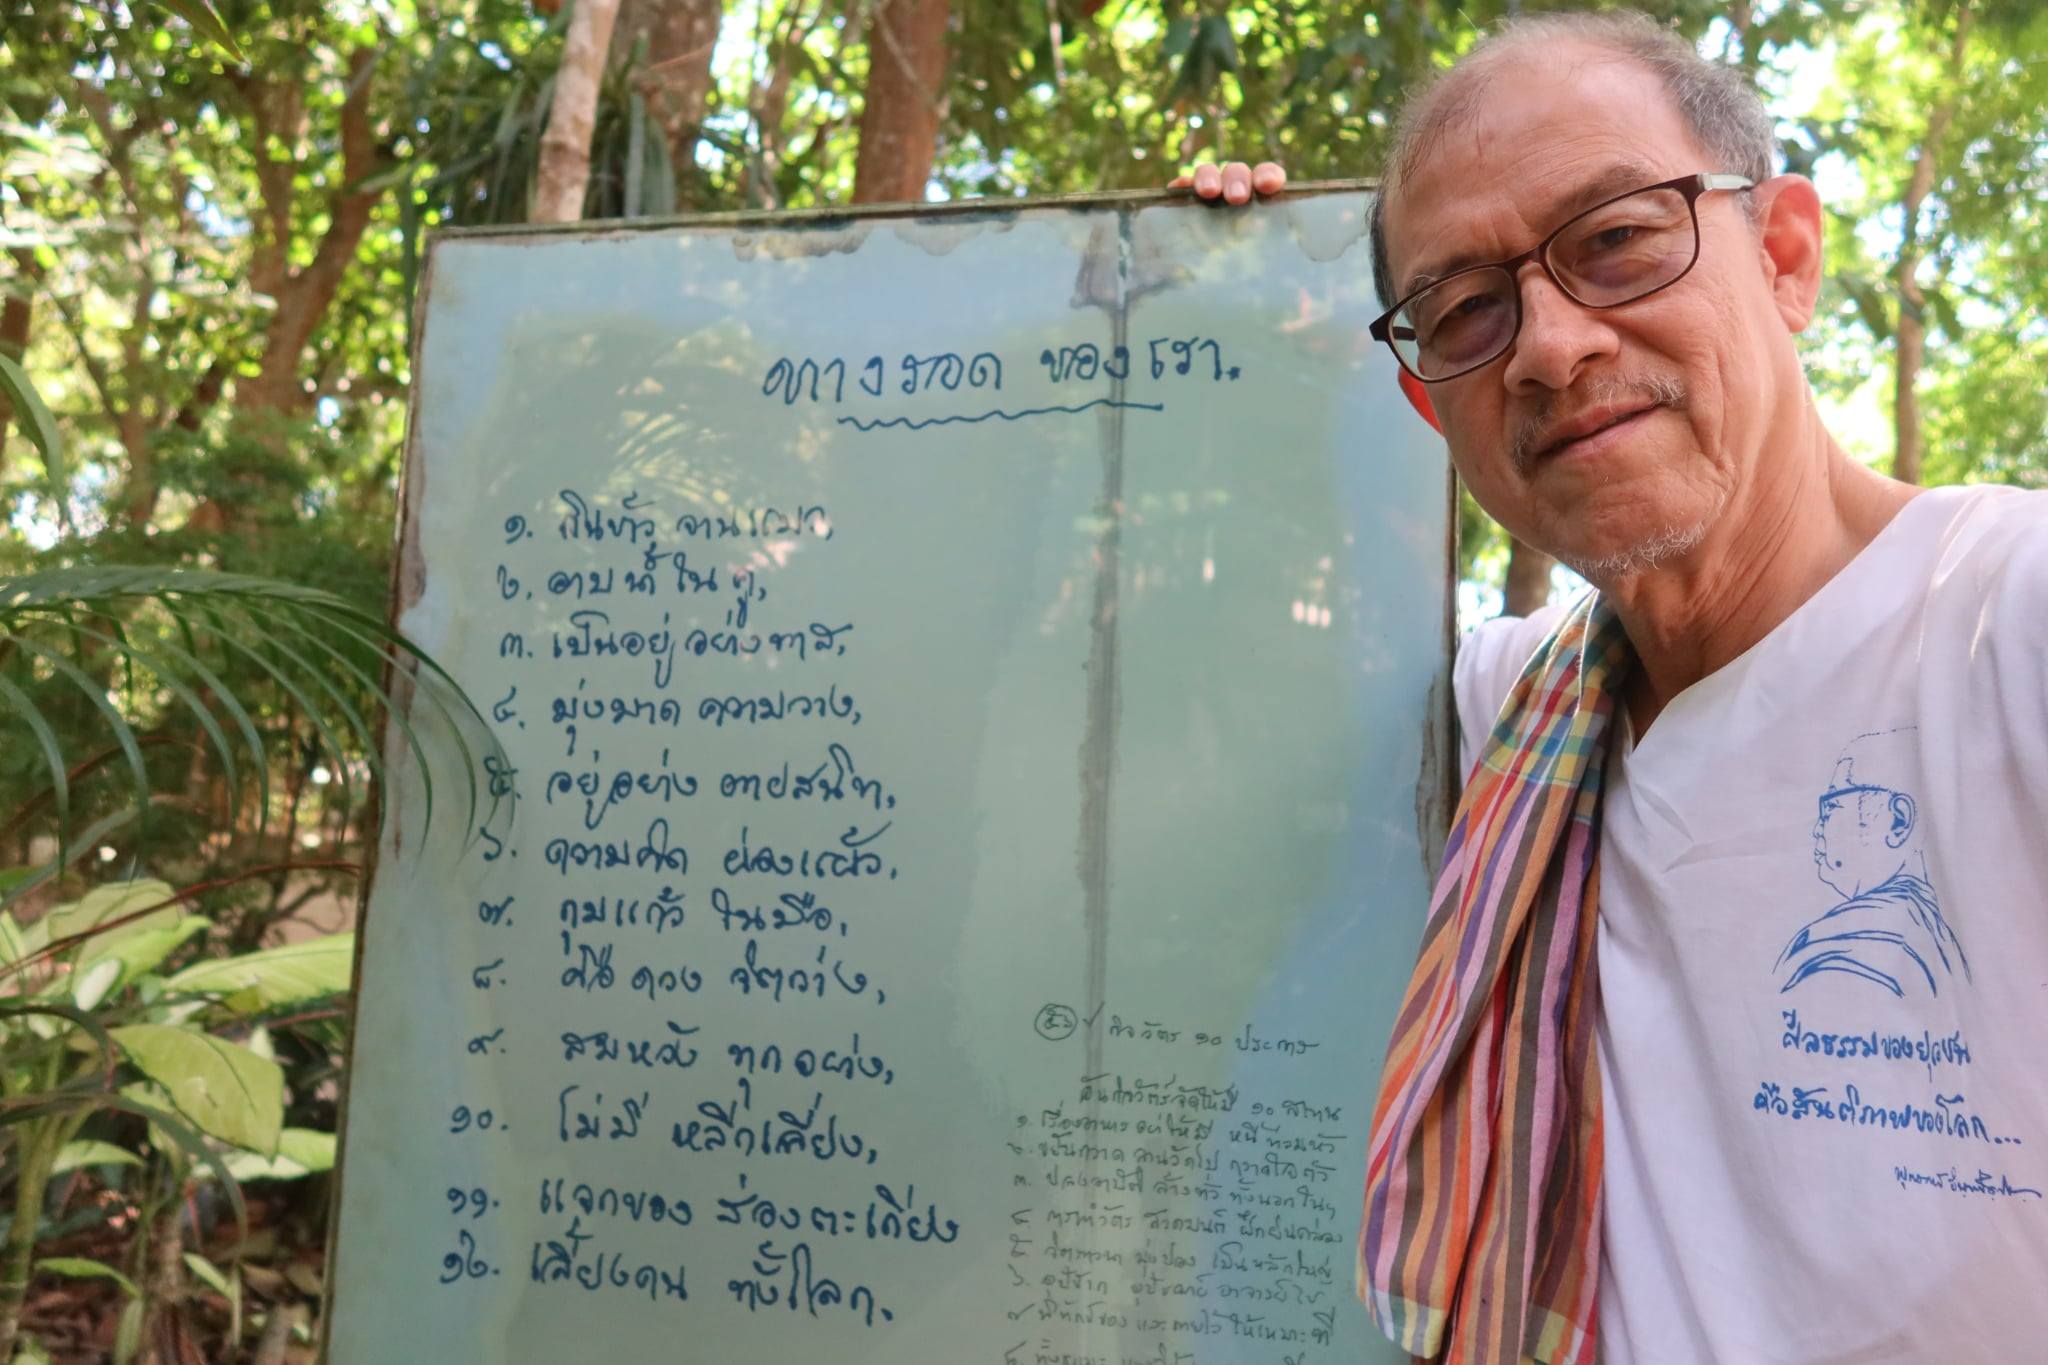 ทางรอด ของเรา.
๑. กินข้าว จานแมว,
๒. อาบน้ำ ในคู,
๓. เป็นอยู่ อย่างทาส,
๔. มุ่งมาด ความว่าง,
๕. อยู่อย่าง ตายสนิท,
๖. ความคิด ผ่องแผ้ว,
๗. กุมแก้ว ในมือ,
๘. คือ ดวง จิตว่าง,
๙. สมหวัง ทุกอย่าง,
๑๐. ไม่มี หลีกเลี่ยง,
๑๑. แจกของ ส่องตะเกียง
๑๒. เลี้ยงคน ทั้งโลก.
๕๖ กิจวัตร ๑๐ ประการ
อันกิจวัตร จัดให้มี ๑๐ สถาน
๑. เรื่องอาหาร อย่าให้มี หนี้ท่วมหัว
๒. ขยันกวาด ลานวัดไป กวาดใจตัว
๓. ปลงอาบัติ ล้างทั่ว ทั้งนอกใน
๔. การทำวัตร สวดมนต์ ฝึกฝนคล่อง
๕. มุ่งปอง เป็นหลักใหญ่
๖. อุปัชฌาย์ อาจารย์
๗. พิทักษ์ของ และกายไว้ ให้เหมาะที่
ศีลธรรมของยุวชน
คือสันติภาพของโลก...
พุทธทาส อินทปัญโญ